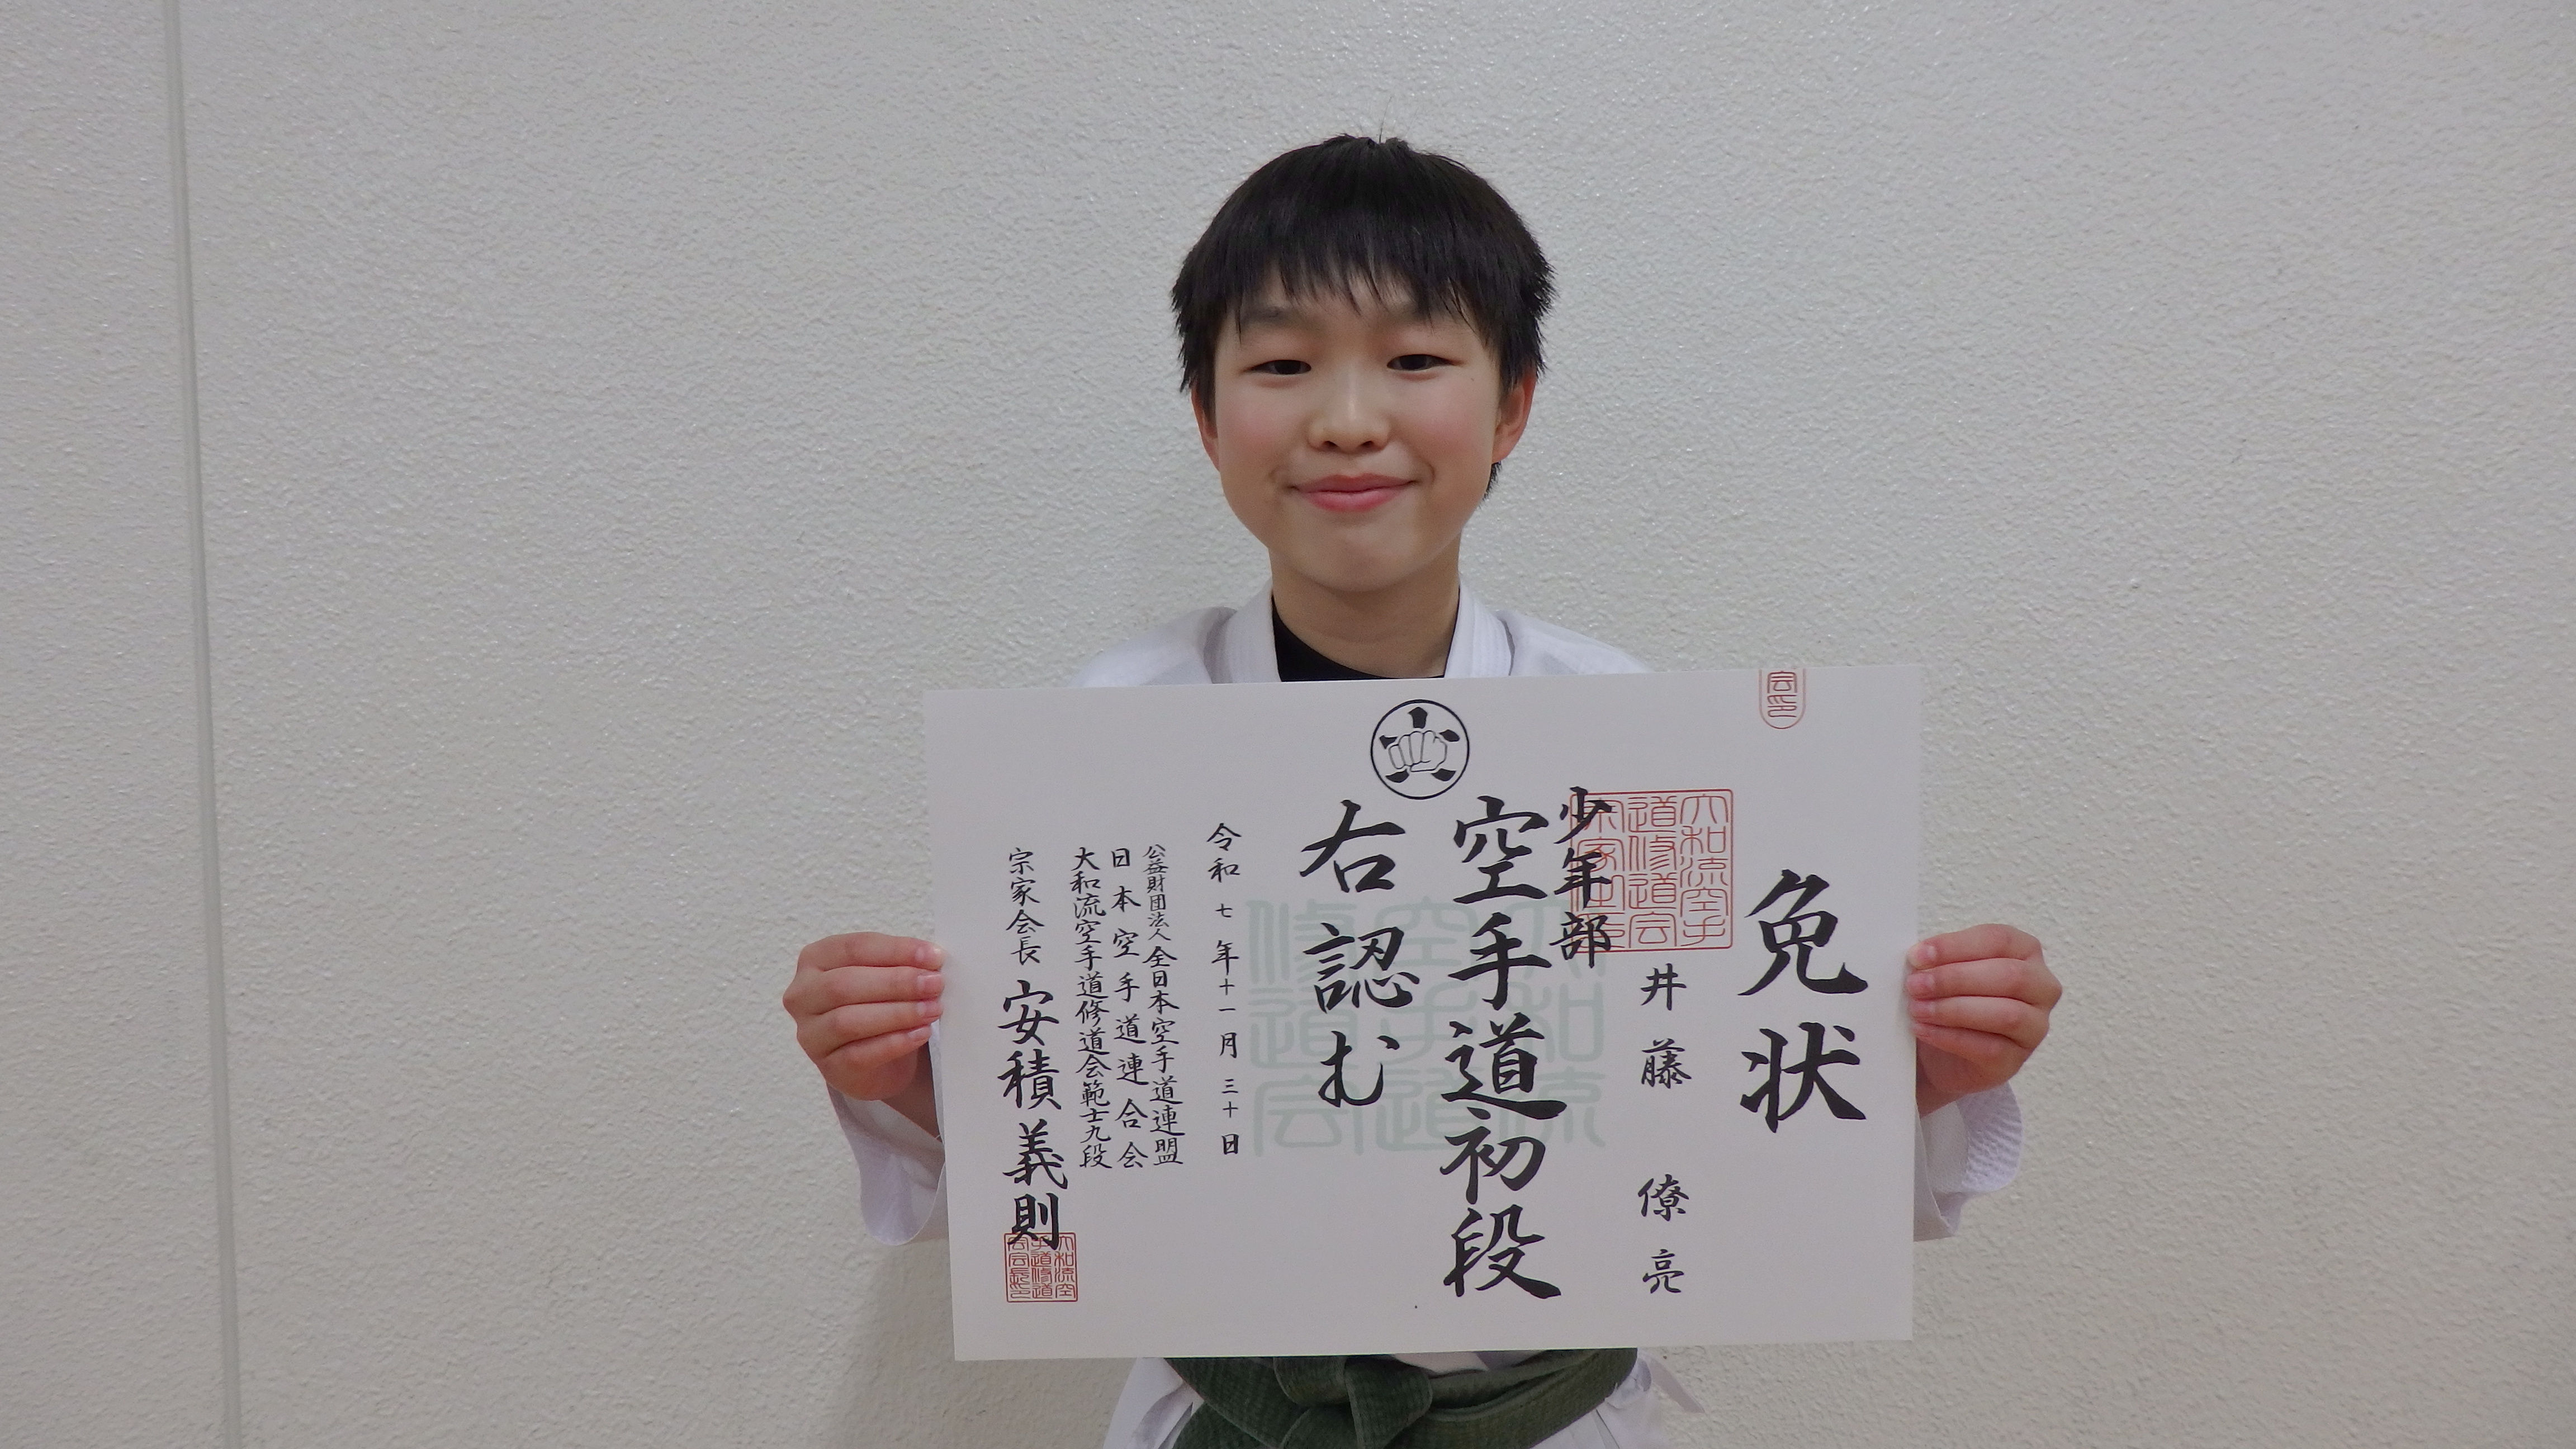 免状
井藤 僚亮
少年部
空手道初段
右認む
令和七年十一月三十日
公益財団法人全日本空手道連盟
日本空手道連合会
大和流空手道修道会範士九段
宗家会長 安積義則
大和流空手道修道会
大和流空手道修道会会長印